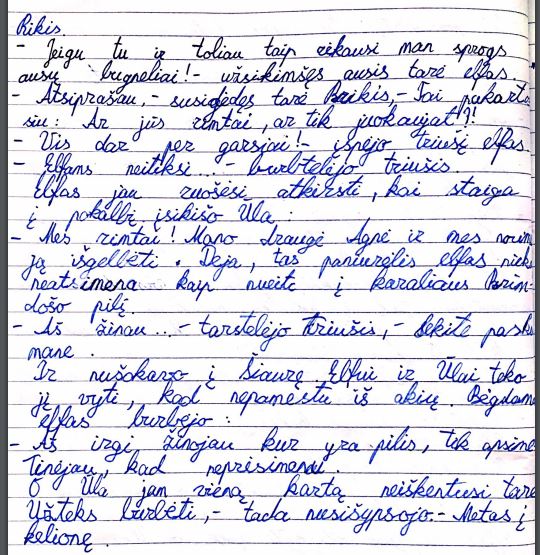 Rikis.
- Jeigu tu ir toliau taip rėkausi man sprogs
ausų būgneliai! - užsikimšęs ausis tarė elfas.
- Atsiprašau, - susigėdęs tarė Brikis, - Tai pakarto
siu: Ar jūs rimtai, ar tik juokaujat?!
- Vis dar per garsiai! - įspėjo triušį elfas.
- Elfams neįtiksi... - burbtelėjo triušis.
Elfas jau ruošėsi atkirsti, kai staiga
į pokalbį įsikišo Ūla:
- Mes rimtai! Mano draugė Agnė ir mes norim
ją išgelbėti. Deja, tas paniurėlis elfas nieko
neatsimena kaip nueiti į karaliaus Brin-
došo pilį.
- Aš žinau... - tarstelėjo triušis, - Sekite pasku
mane.
Ir nušokavo į šiaurę. Elfui ir Ūlai teko
jį vyti, kad nepamestų iš akių. Bėgdam
elfas burbėjo:
- Aš irgi žinojau kur yra pilis, tik apsime
tinėjau, kad neprisimenu.
O Ūla jam vieną kartą neiškentusi tarė
Užteks burbėti, - tada nusišypsojo. - Metas į
kelionę.